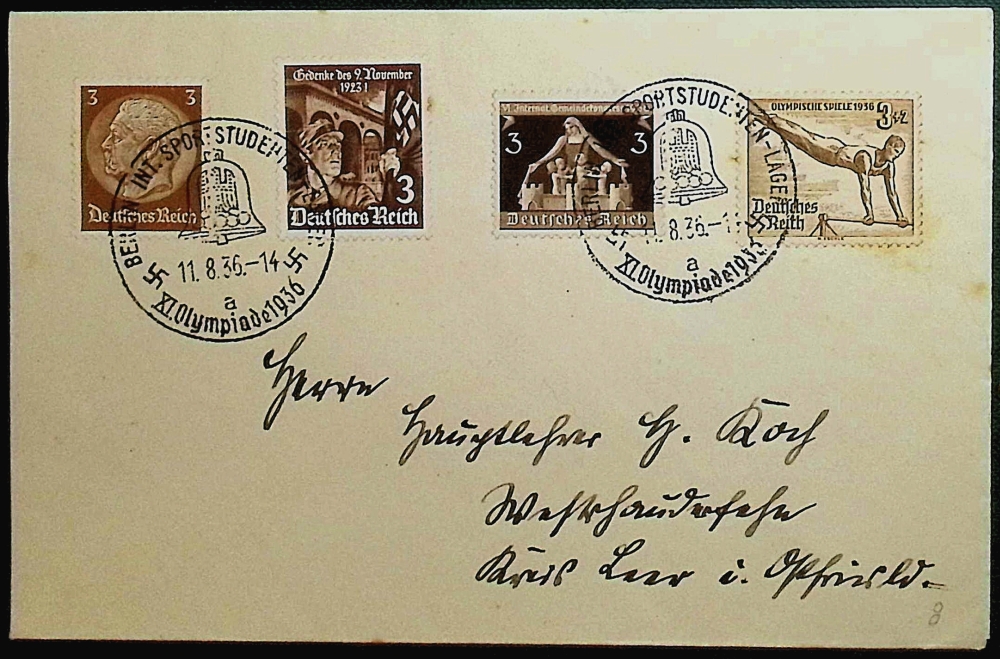 3 3
Deutsches Reich
Gedenke des 9. November
1923!
3
Deutsches Reich
VI. Internat. Gemeindekongress
3 3
Deutsches Reich
OLYMPISCHE SPIELE 1936
3+2
Deutsches
Reich
BERLIN INT. SPORTSTUDENTEN-LAGER
11.8.36.-14
a
XI. Olympiade 1936
SPORTSTUDENTEN-LAGER
11.8.36.-14
a
XI. Olympiade 1936
Herrn
Hauptlehrer H. Koch
Westrhauderfehn
Kreis Leer i. Ostfriesld.
8